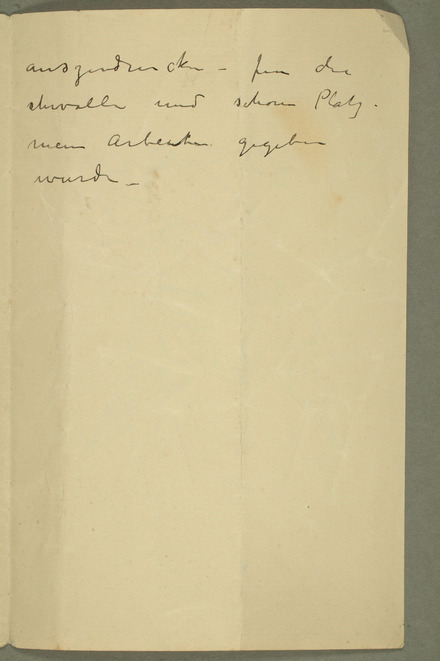 auszudrucken – fur die
ehrvolle und schone Platz.
mein Arbeiten gegeben
wurde –